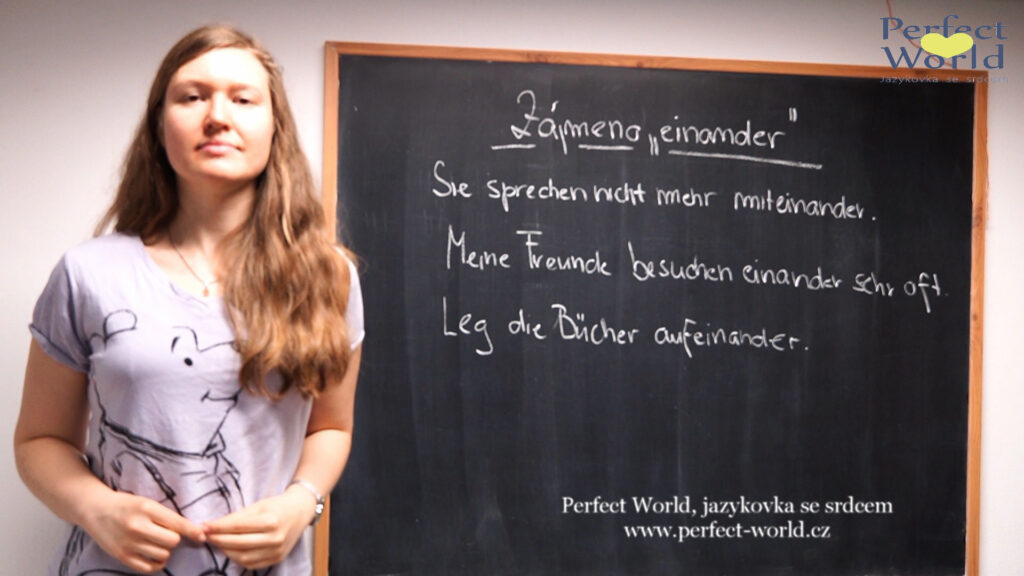 Perfect
World
Jazykovka se srdcem
Zájmeno „einander"
Sie sprechen nicht mehr miteinander.
Meine Freunde besuchen einander sehr oft.
Leg die Bücher aufeinander.
Perfect World, jazykovka se srdcem
www.perfect-world.cz